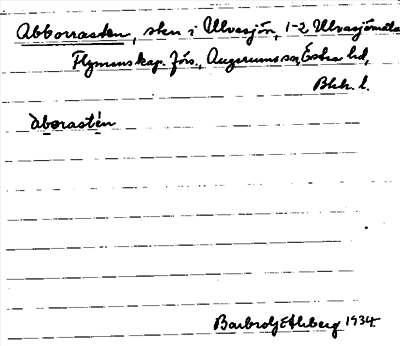 Abborrasten, sten i Ulvasjön, 1-2 Ulvasjömåla
Flymens kap. förs., Augerums sn, Östra hd,
Blek. l.
àborastén
Barbro Ahlberg 1934.